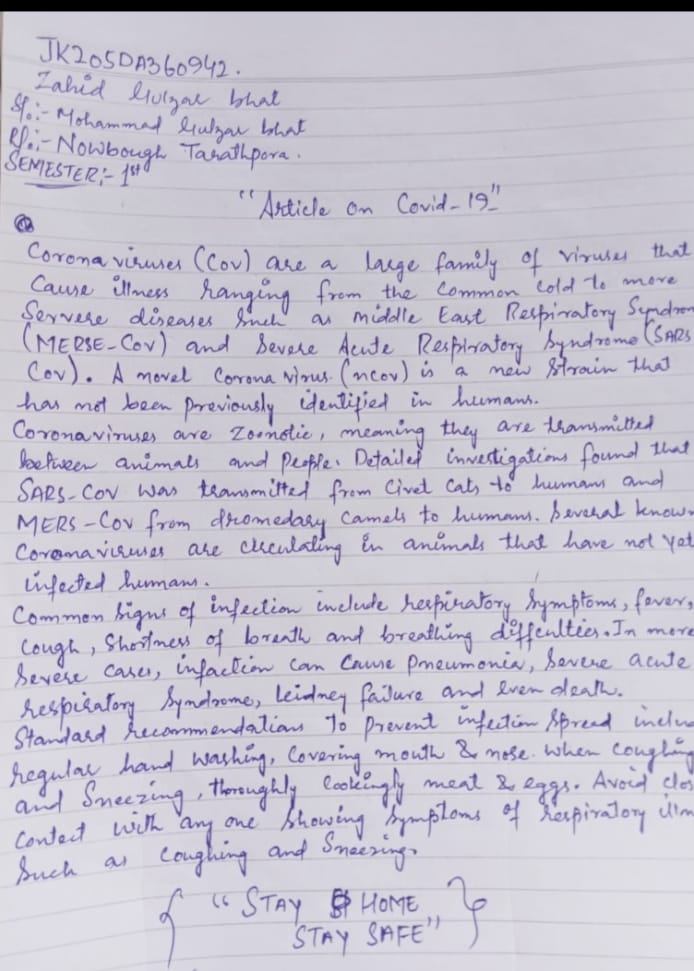 JK205DA360942.
Zahid Gulzar bhat
S/o:- Mohammad Gulzar bhat
R/o:- Nowbough Tarathpora.
SEMESTER:- 1st
"Article on Covid-19"
Corona viruses (Cov) are a large family of viruses that
Cause illness ranging from the Common Cold to more
Servere diseases Such as Middle East Respiratory Syndrom
(MERSE-Cov) and Severe Acute Respiratory Syndrome (SARS
Cov). A novel Corona virus (ncov) is a new Strain that
has not been previously identified in humans.
Coronaviruses are Zoonotic, meaning they are transmitted
between animals and People. Detailed investigations found that
SARS-Cov was transmitted from Civet Cats to humans and
MERS-Cov from dromedary Camels to humans. Several known
Coronaviruses are circulating in animals that have not yet
infected humans.
Common Signs of infection include respiratory Symptoms, fever,
Cough, Shortness of breath and breathing diffculties. In more
Severe Cases, infaction Can Cause Pneumonia, Severe acute
respiratory Syndrome, keidney failure and even death.
Standard recommendations To Prevent infection Spread inclu
regular hand washing, Covering mouth & nose when Coughing
and Sneezing, thoroughly Cookingly meat & eggs. Avoid clos
Contact with any one Showing Symptoms of respiratory illn
Such as Coughing and Sneezing.
{"STAY HOME
STAY SAFE"}